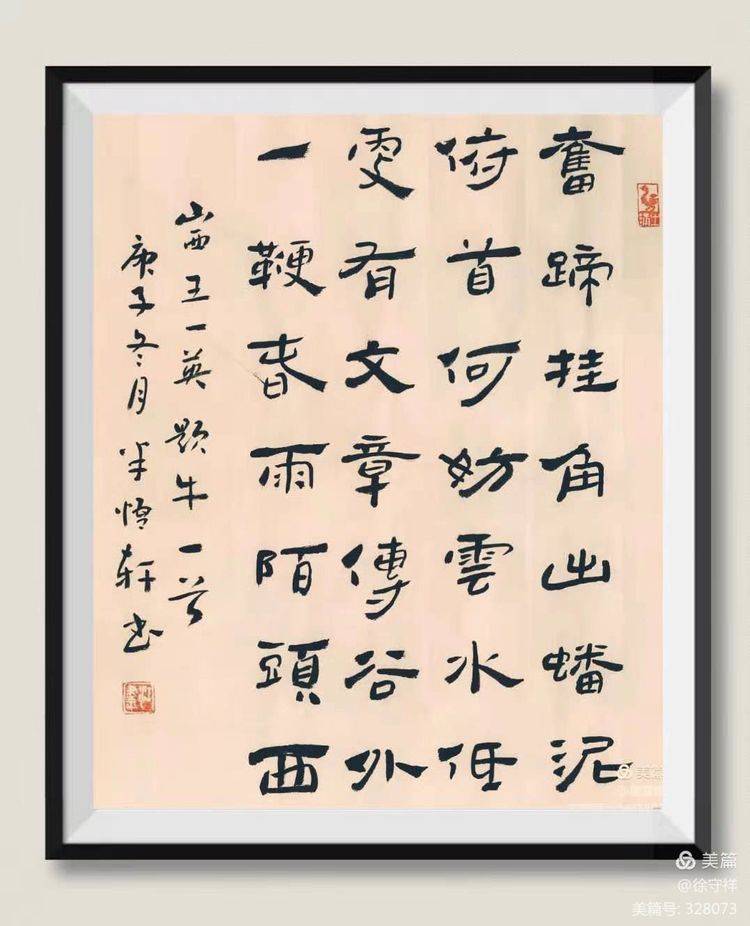 奮蹄挂角出蟠泥
俯首何妨雲水低
更有文章傳谷外
一鞭春雨陌頭西
山西王一英题牛一首
庚子冬月半悟轩书
美篇
美篇
@徐守祥
美篇号: 328073